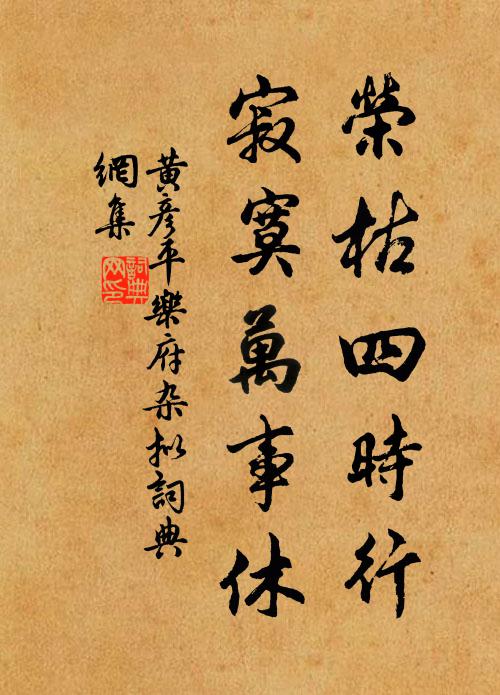 榮枯四時行
寂寞萬事休
黃彥平樂府杂拟詞典
網集
詞典
网印